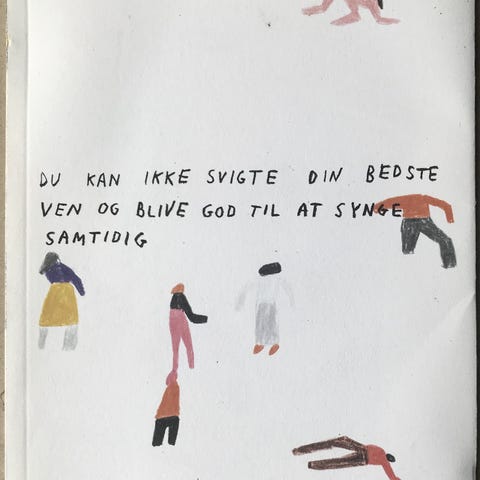 DU KAN IKKE SVIGTE DIN BEDSTE
VEN OG BLIVE GOD TIL AT SYNGE
SAMTIDIG